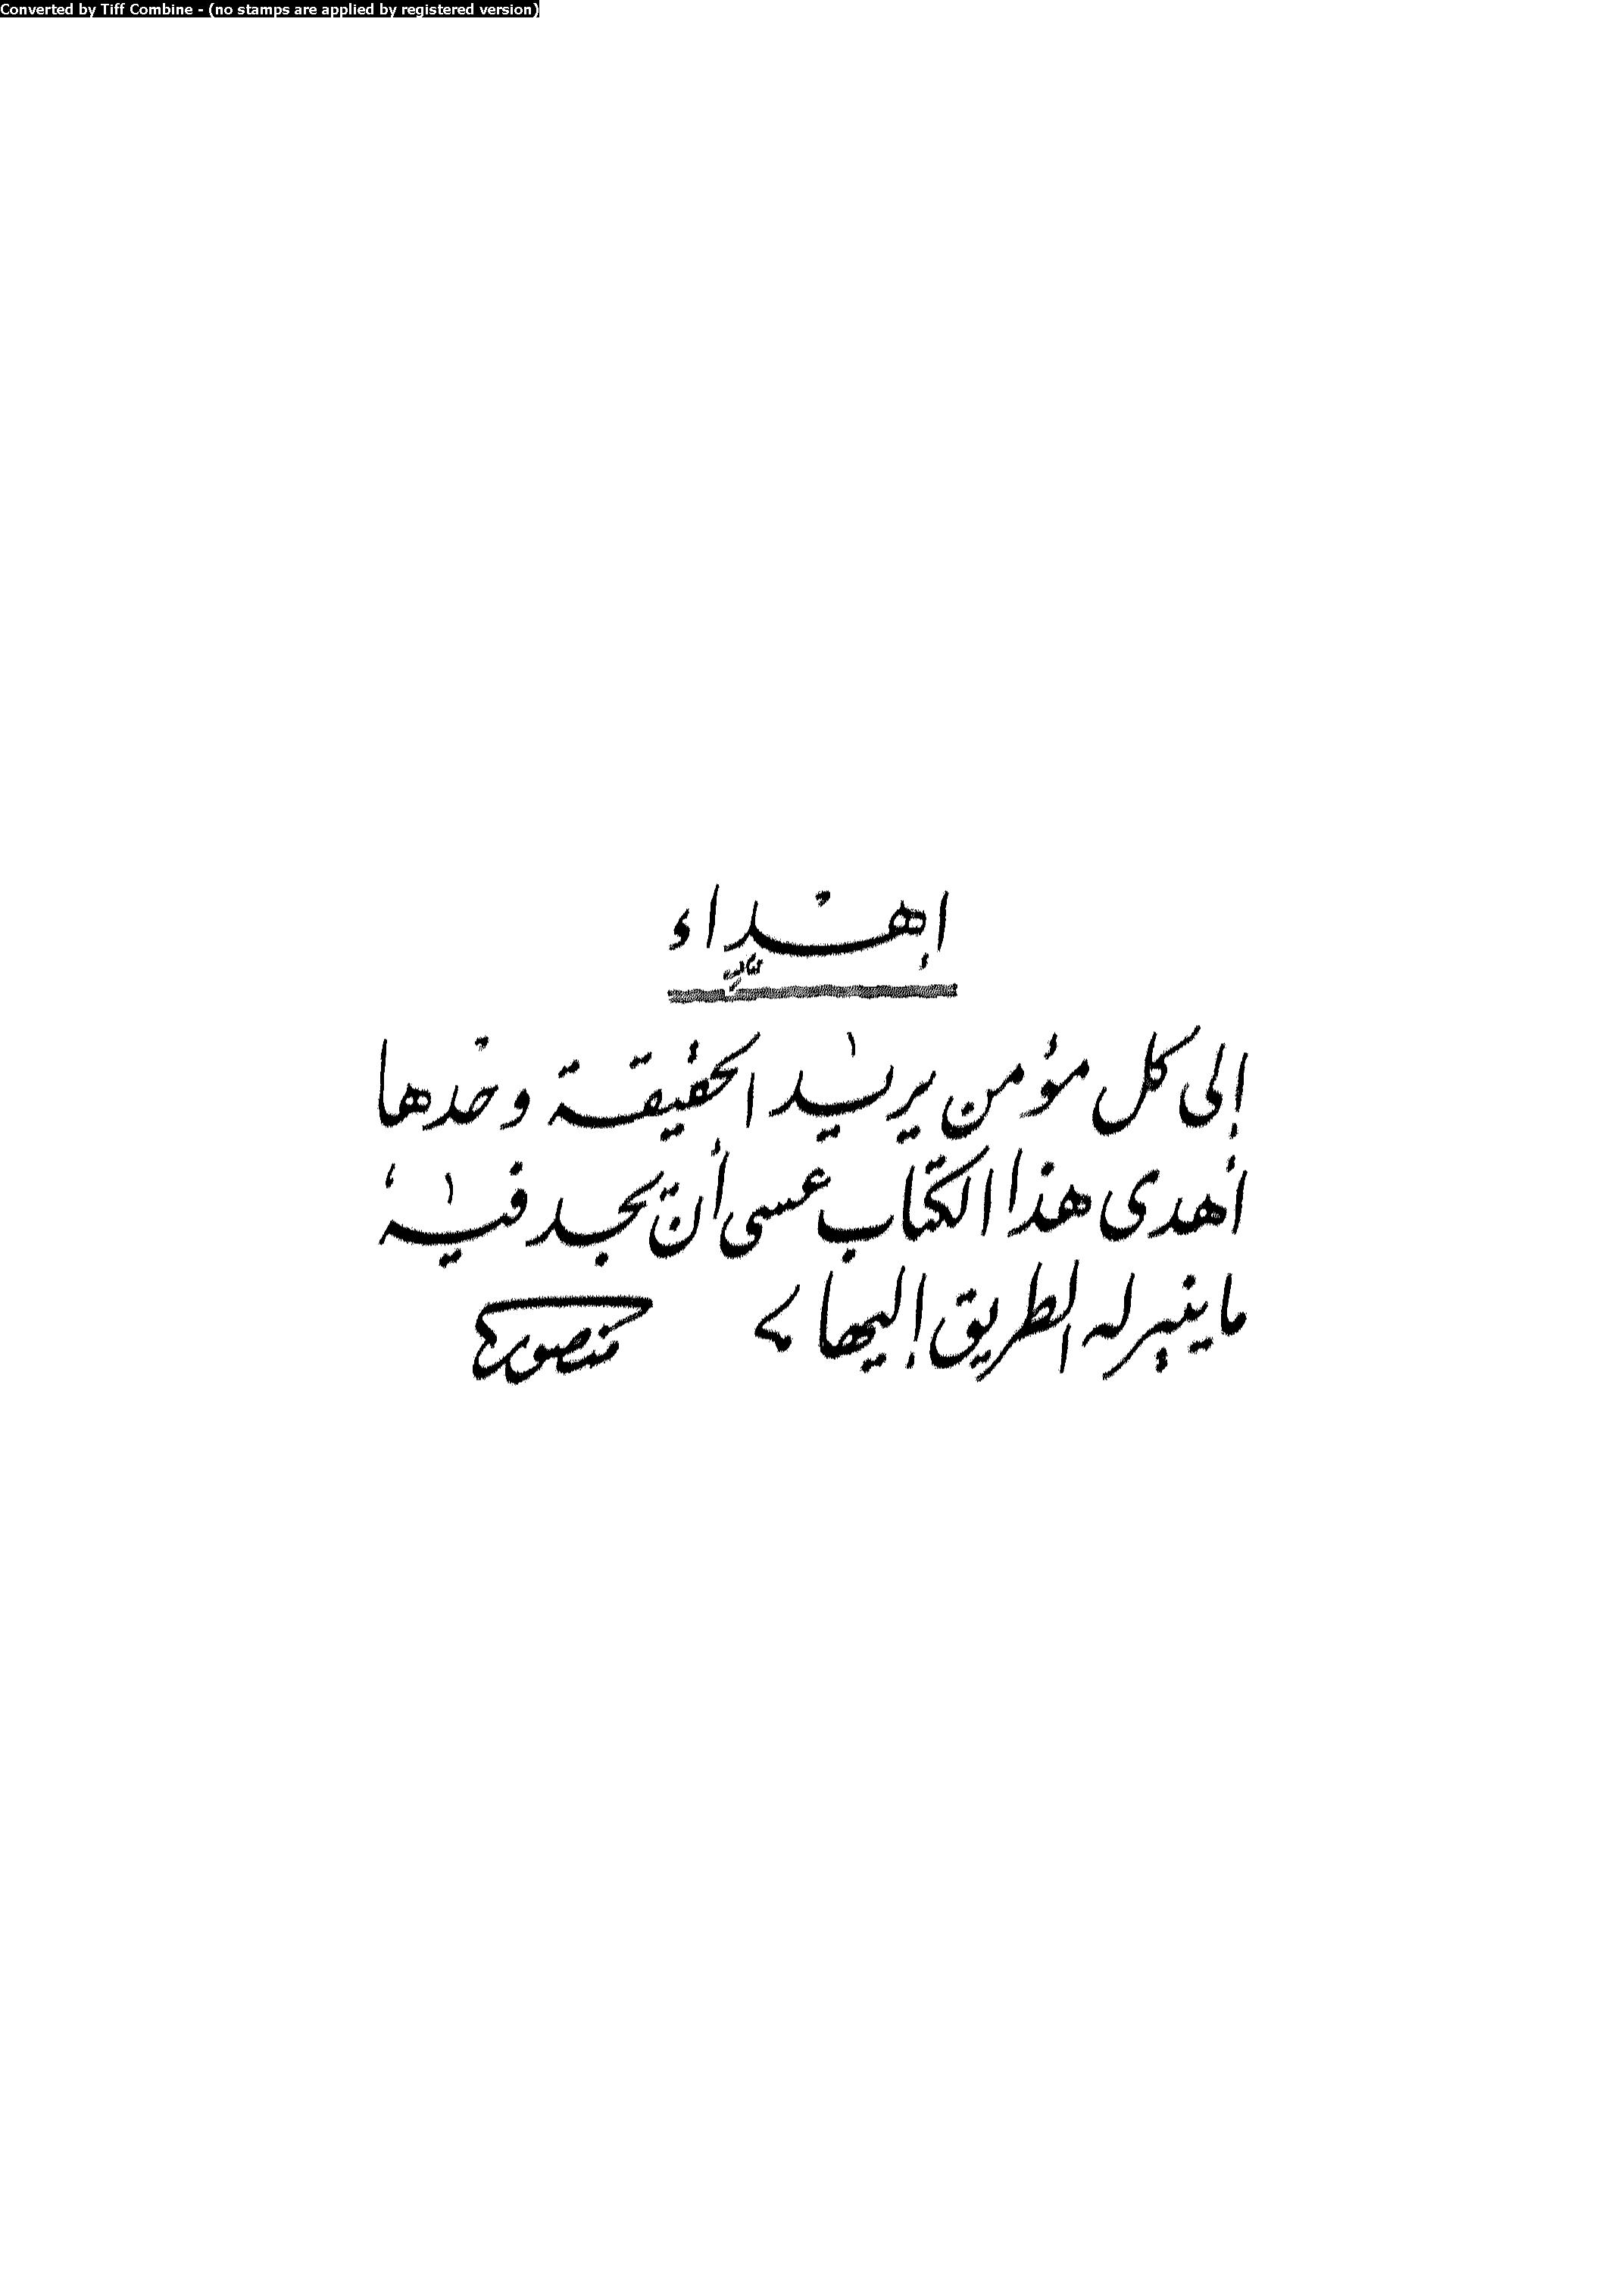 Converted by Tiff Combine - (no stamps are applied by registered version)
إهداء
إلى كل مؤمن يريد الحقيقة وحدها
أهدى هذا الكتاب عسى أن يجد فيه
ما ينير له الطريق إليها
منصور